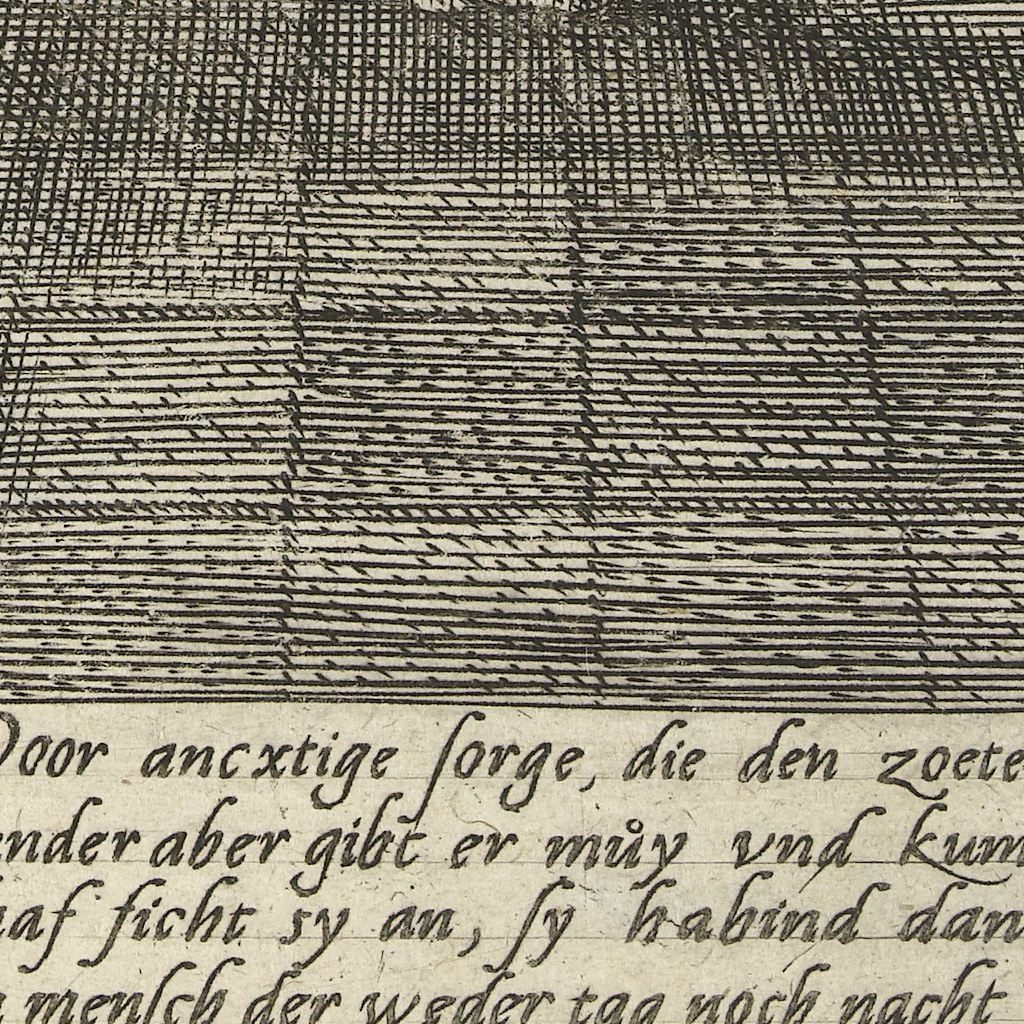 Door ancxtige ſorge, die den zoete
ender aber gibt er můy vnd kum
haf ficht sy an, ſy habind dan
menſch der weder tag noch nacht